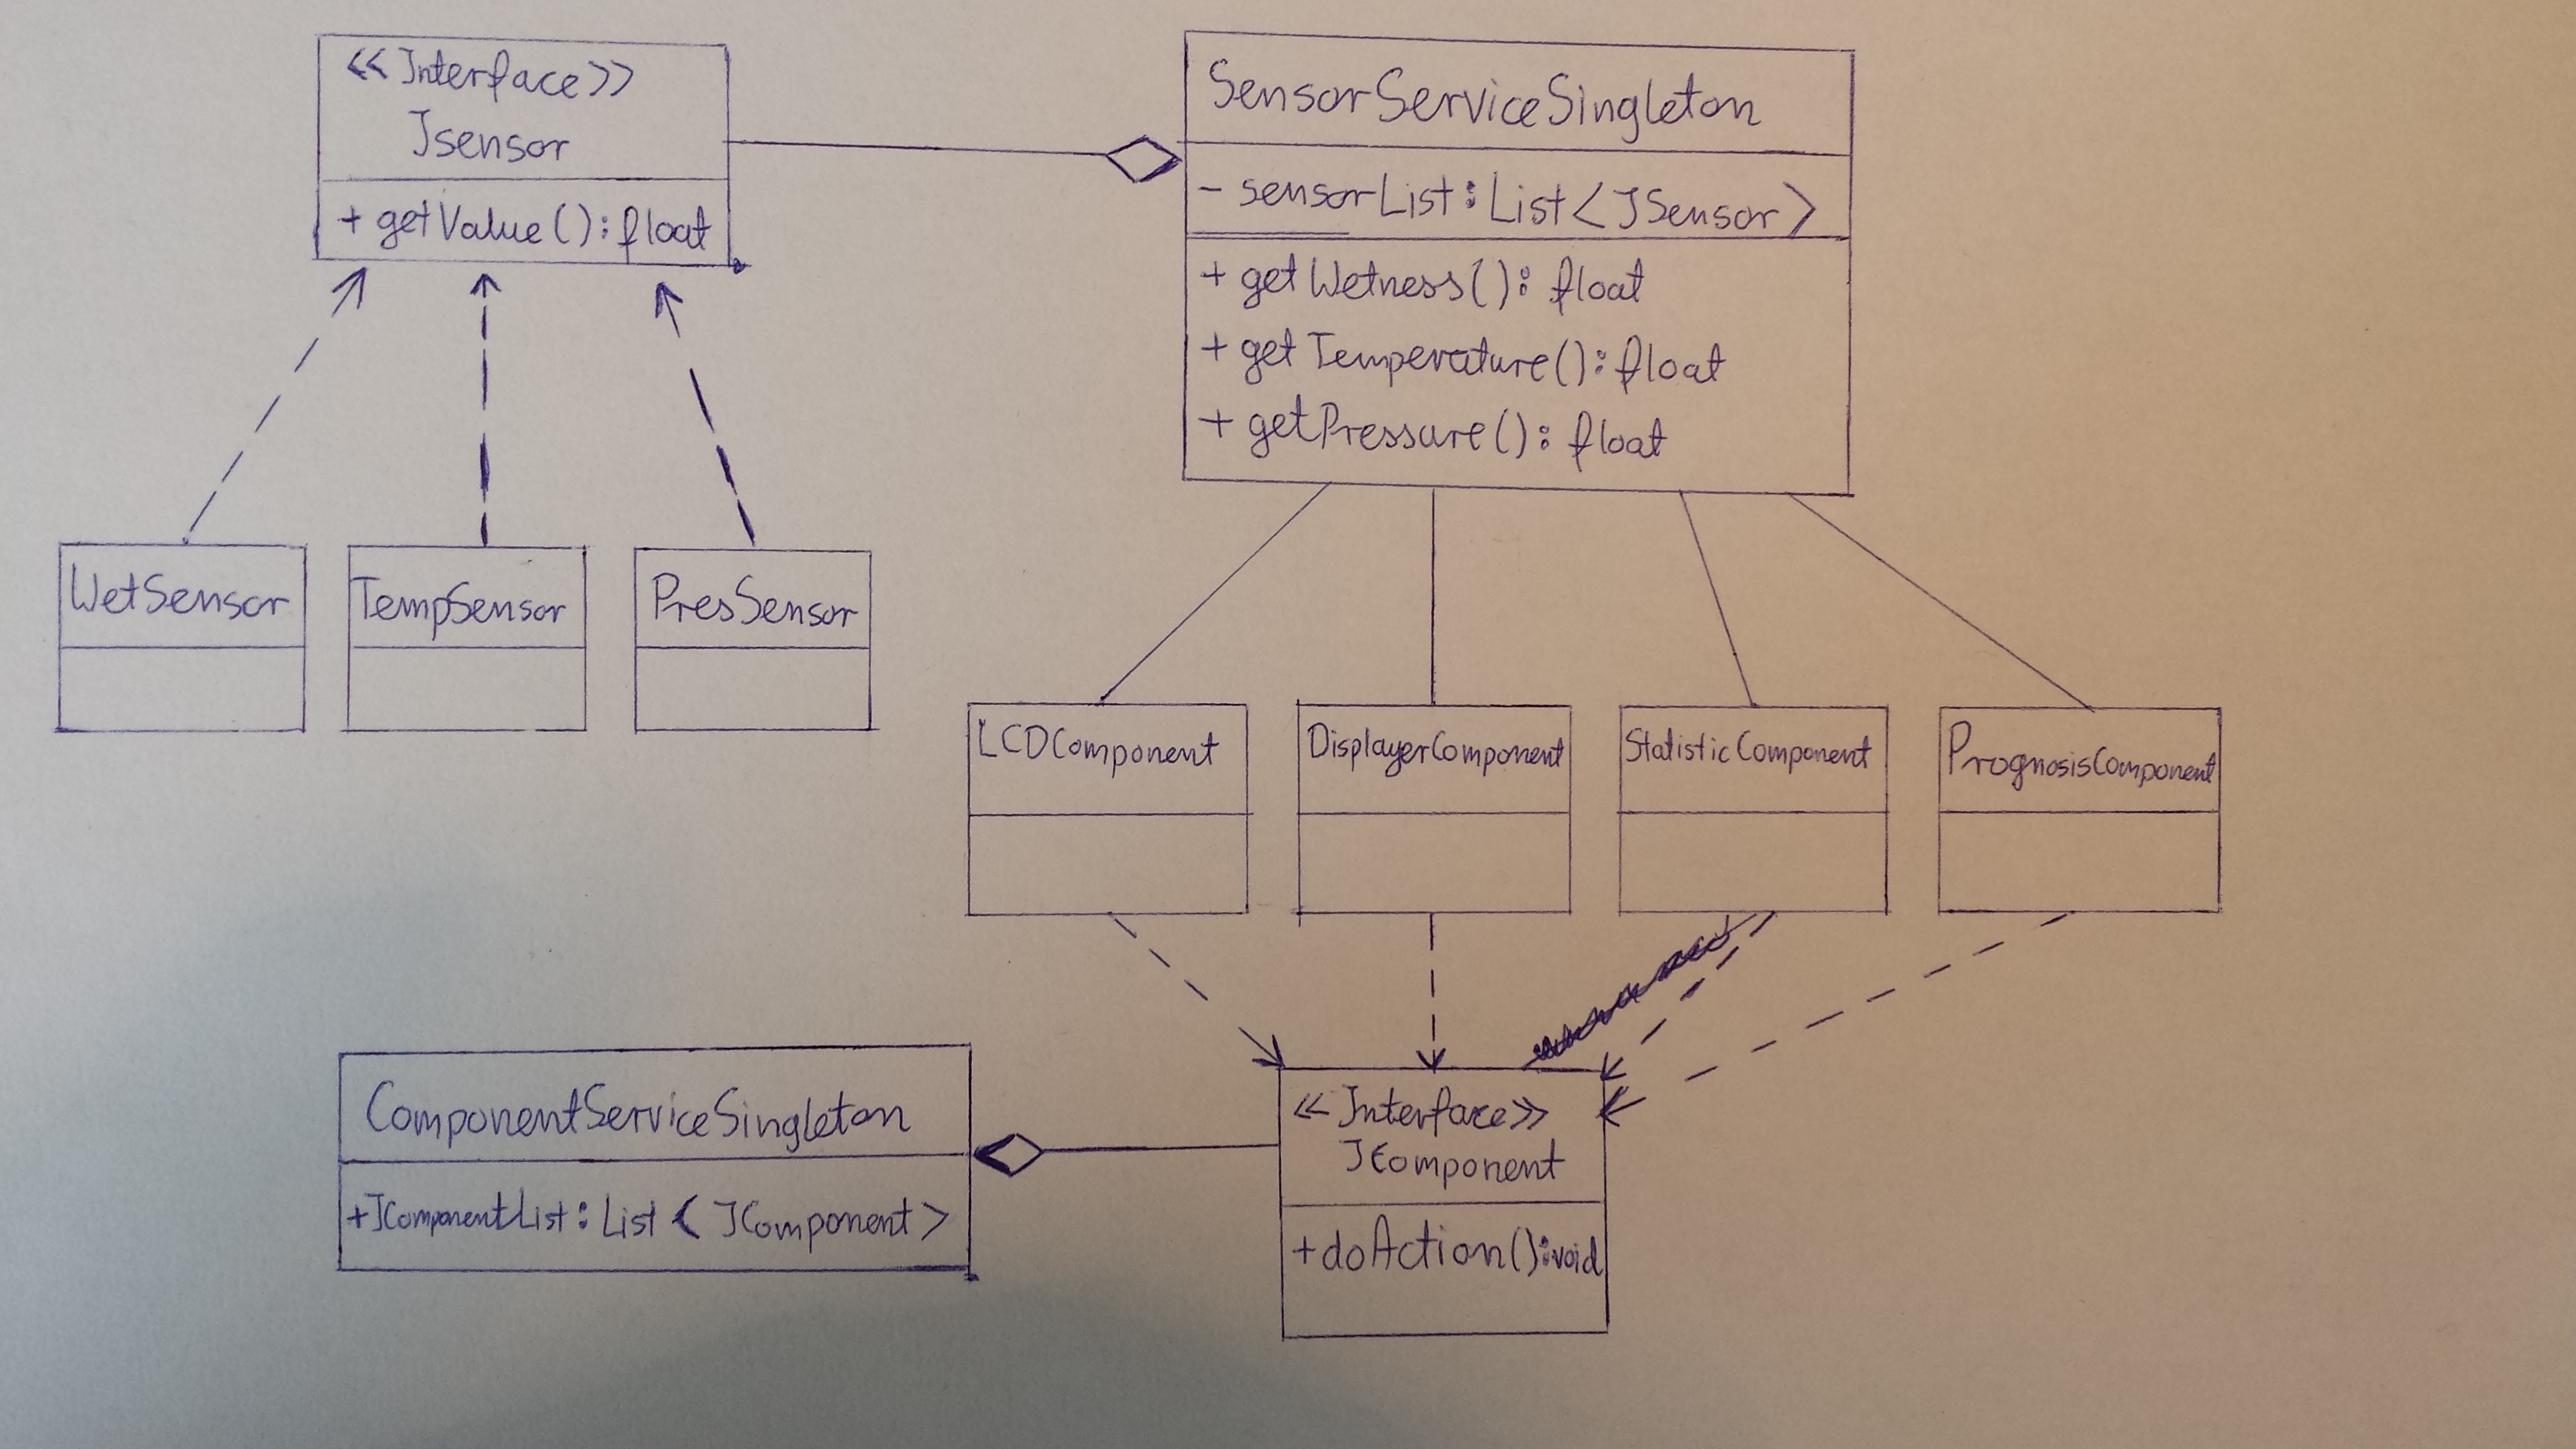 <<Interface>>
Isensor
+ getValue(): float
SensorServiceSingleton
- sensorList: List<ISensor>
+ getWetness(): float
+ getTemperature(): float
+ getPressure(): float
WetSensor
TempSensor
PresSensor
LCDComponent
DisplayerComponent
StatisticComponent
PrognosisComponent
ComponentServiceSingleton
+IComponentList: List<IComponent>
<<Interface>>
IComponent
+doAction():void